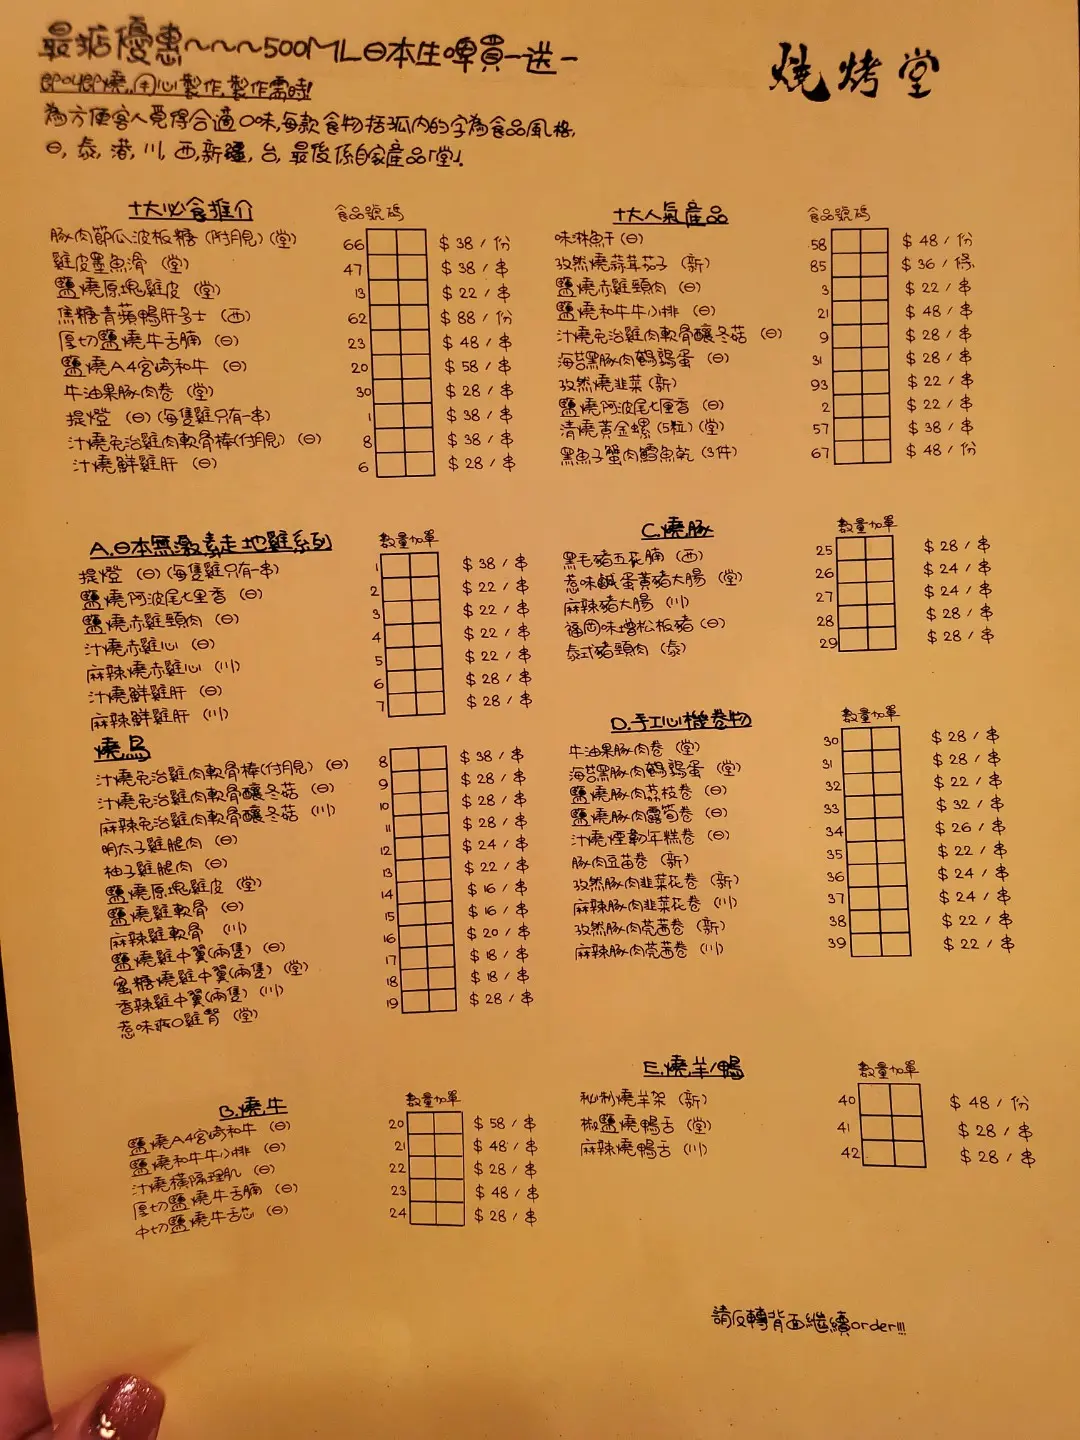 最掂優惠~~~500ML日本生啤買一送一
燒烤堂
即叫即燒,用心製作,製作需時!
為方便客人覓得合適口味,每款食物括弧內的字為食品風格,
日, 泰, 港, 川, 西, 新疆, 台, 最後係自家產品「堂」.
十大必食推介 食品號碼
豚肉節瓜波板糖 (附月見) (堂) 66 $ 38 / 份
雞皮墨魚滑 (堂) 47 $ 38 / 串
鹽燒原塊雞皮 (堂) 13 $ 22 / 串
焦糖青蘋鴨肝多士 (西) 62 $ 88 / 份
厚切鹽燒牛舌腩 (日) 23 $ 48 / 串
鹽燒A4宮崎和牛 (日) 20 $ 58 / 串
牛油果豚肉卷 (堂) 30 $ 28 / 串
提燈 (日) (每隻雞只有一串) 1 $ 38 / 串
汁燒免治雞肉軟骨棒(付月見) (日) 8 $ 38 / 串
汁燒鮮雞肝 (日) 6 $ 28 / 串
十大人氣產品 食品號碼
味淋魚干 (日) 58 $ 48 / 份
孜然燒蒜茸茄子 (新) 85 $ 36 / 條
鹽燒赤雞頸肉 (日) 3 $ 22 / 串
鹽燒和牛牛小排 (日) 21 $ 48 / 串
汁燒免治雞肉軟骨釀冬菇 (日) 9 $ 28 / 串
海苔黑豚肉鵪鶉蛋 (日) 31 $ 28 / 串
孜然燒韭菜 (新) 93 $ 22 / 串
鹽燒阿波尾七里香 (日) 2 $ 22 / 串
清燒黃金螺 (5粒) (堂) 57 $ 38 / 串
黑魚子蟹肉鱈魚乾 (3件) 67 $ 48 / 份
A.日本無激素走地雞系列 數量加單
提燈 (日) (每隻雞只有一串) 1 $ 38 / 串
鹽燒阿波尾七里香 (日) 2 $ 22 / 串
鹽燒赤雞頸肉 (日) 3 $ 22 / 串
汁燒赤雞心 (日) 4 $ 22 / 串
麻辣燒赤雞心 (川) 5 $ 22 / 串
汁燒鮮雞肝 (日) 6 $ 28 / 串
麻辣鮮雞肝 (川) 7 $ 28 / 串
燒鳥
汁燒免治雞肉軟骨棒(付月見) (日) 8 $ 38 / 串
汁燒免治雞肉軟骨釀冬菇 (日) 9 $ 28 / 串
麻辣免治雞肉軟骨釀冬菇 (川) 10 $ 28 / 串
明太子雞腿肉 (日) 11 $ 28 / 串
柚子雞腿肉 (日) 12 $ 24 / 串
鹽燒原塊雞皮 (堂) 13 $ 22 / 串
鹽燒雞軟骨 (日) 14 $ 16 / 串
麻辣雞軟骨 (川) 15 $ 16 / 串
鹽燒雞中翼(兩隻) (日) 16 $ 20 / 串
蜜糖燒雞中翼(兩隻) (堂) 17 $ 18 / 串
香辣雞中翼(兩隻) (川) 18 $ 18 / 串
惹味爽口雞腎 (堂) 19 $ 28 / 串
B.燒牛 數量加單
鹽燒A4宮崎和牛 (日) 20 $ 58 / 串
鹽燒和牛牛小排 (日) 21 $ 48 / 串
汁燒橫隔理肌 (日) 22 $ 28 / 串
厚切鹽燒牛舌腩 (日) 23 $ 48 / 串
中切鹽燒牛舌芯 (日) 24 $ 28 / 串
C.燒豚 數量加單
黑毛豬五花腩 (西) 25 $ 28 / 串
惹味鹹蛋黃豬大腸 (堂) 26 $ 24 / 串
麻辣豬大腸 (川) 27 $ 24 / 串
福岡味增松板豬 (日) 28 $ 28 / 串
泰式豬頸肉 (泰) 29 $ 28 / 串
D.手工心機卷物 數量加單
牛油果豚肉卷 (堂) 30 $ 28 / 串
海苔黑豚肉鵪鶉蛋 (堂) 31 $ 28 / 串
鹽燒豚肉荔枝卷 (日) 32 $ 22 / 串
鹽燒豚肉露筍卷 (日) 33 $ 32 / 串
汁燒煙韌年糕卷 (日) 34 $ 26 / 串
豚肉豆苗卷 (新) 35 $ 22 / 串
孜然豚肉韭菜花卷 (新) 36 $ 24 / 串
麻辣豚肉韭菜花卷 (川) 37 $ 24 / 串
孜然豚肉芫茜卷 (新) 38 $ 22 / 串
麻辣豚肉芫茜卷 (川) 39 $ 22 / 串
E.燒羊/鴨 數量加單
秘制燒羊架 (新) 40 $ 48 / 份
椒鹽燒鴨舌 (堂) 41 $ 28 / 串
麻辣燒鴨舌 (川) 42 $ 28 / 串
請反轉背面繼續order!!!